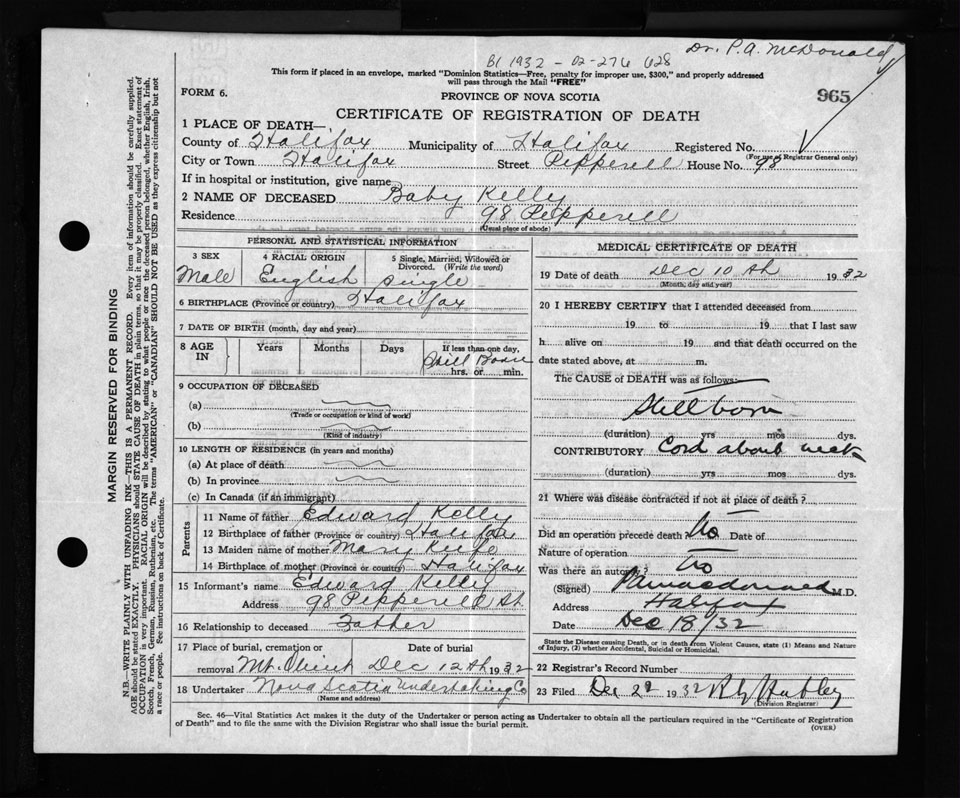 Dr. P.A. McDonald
B1 1932 - 02-276 628
This form if placed in an envelope, marked "Dominion Statistics—Free, penalty for improper use, $300," and properly addressed
will pass through the Mail "FREE"
FORM 6.
PROVINCE OF NOVA SCOTIA
965
CERTIFICATE OF REGISTRATION OF DEATH
1 PLACE OF DEATH—
County of Halifax Municipality of Halifax Registered No.
(For use of Registrar General only)
City or Town Halifax Street Pepperell House No. 98
If in hospital or institution, give name
2 NAME OF DECEASED Baby Kelly
Residence 98 Pepperell
(Usual place of abode)
PERSONAL AND STATISTICAL INFORMATION
3 SEX 4 RACIAL ORIGIN 5 Single, Married, Widowed or
Divorced. (Write the word)
Male English Single
6 BIRTHPLACE (Province or country) Halifax
7 DATE OF BIRTH (month, day and year)
8 AGE IN Years Months Days If less than one day,
Still Born
hrs. or min.
9 OCCUPATION OF DECEASED
(a)
(Trade or occupation or kind of work)
(b)
(Kind of industry)
10 LENGTH OF RESIDENCE (in years and months)
(a) At place of death
(b) In province
(c) In Canada (if an immigrant)
Parents
11 Name of father Edward Kelly
12 Birthplace of father (Province or country) Halifax
13 Maiden name of mother Mary Keefe
14 Birthplace of mother (Province or country) Halifax
15 Informant's name Edward Kelly
Address 98 Pepperell St
16 Relationship to deceased Father
17 Place of burial, cremation or Date of burial
removal Mt. Olivet Dec 12th 1932
18 Undertaker Nova Scotia Undertaking Co
(Name and address)
MEDICAL CERTIFICATE OF DEATH
19 Date of death Dec 10th 1932
(Month, day and year)
20 I HEREBY CERTIFY that I attended deceased from
19 to 19 that I last saw
h alive on 19 and that death occurred on the
date stated above, at m.
The CAUSE of DEATH was as follows:
Stillborn
(duration) yrs mos dys.
CONTRIBUTORY Cord about neck
(duration) yrs mos dys.
21 Where was disease contracted if not at place of death?
Did an operation precede death No Date of
Nature of operation
Was there an autopsy? No
(Signed) PAMacdonald M.D.
Address Halifax
Date Dec 18/32
State the Disease causing Death, or in death from Violent Causes, state (1) Means and Nature
of Injury, (2) whether Accidental, Suicidal or Homicidal.
22 Registrar's Record Number
23 Filed Dec 1932 Hubley
(Division Registrar)
Sec. 46—Vital Statistics Act makes it the duty of the Undertaker or person acting as Undertaker to obtain all the particulars required in the "Certificate of Registration
of Death" and to file the same with the Division Registrar who shall issue the burial permit.
(OVER)
MARGIN RESERVED FOR BINDING
N.B.—WRITE PLAINLY WITH UNFADING INK—THIS IS A PERMANENT RECORD. Every item of information should be carefully supplied.
AGE should be stated EXACTLY. PHYSICIANS should STATE CAUSE OF DEATH in plain terms, so that it may be properly classified. Exact statement of
OCCUPATION is very important. RACIAL ORIGIN will be described by stating to what people or race the deceased person belonged, whether English, Irish,
Scotch, French, German, Russian, Ruthenian, etc. The terms "AMERICAN" or "CANADIAN" SHOULD NOT BE USED as they express citizenship but not
a race or people. See instructions on back of Certificate.